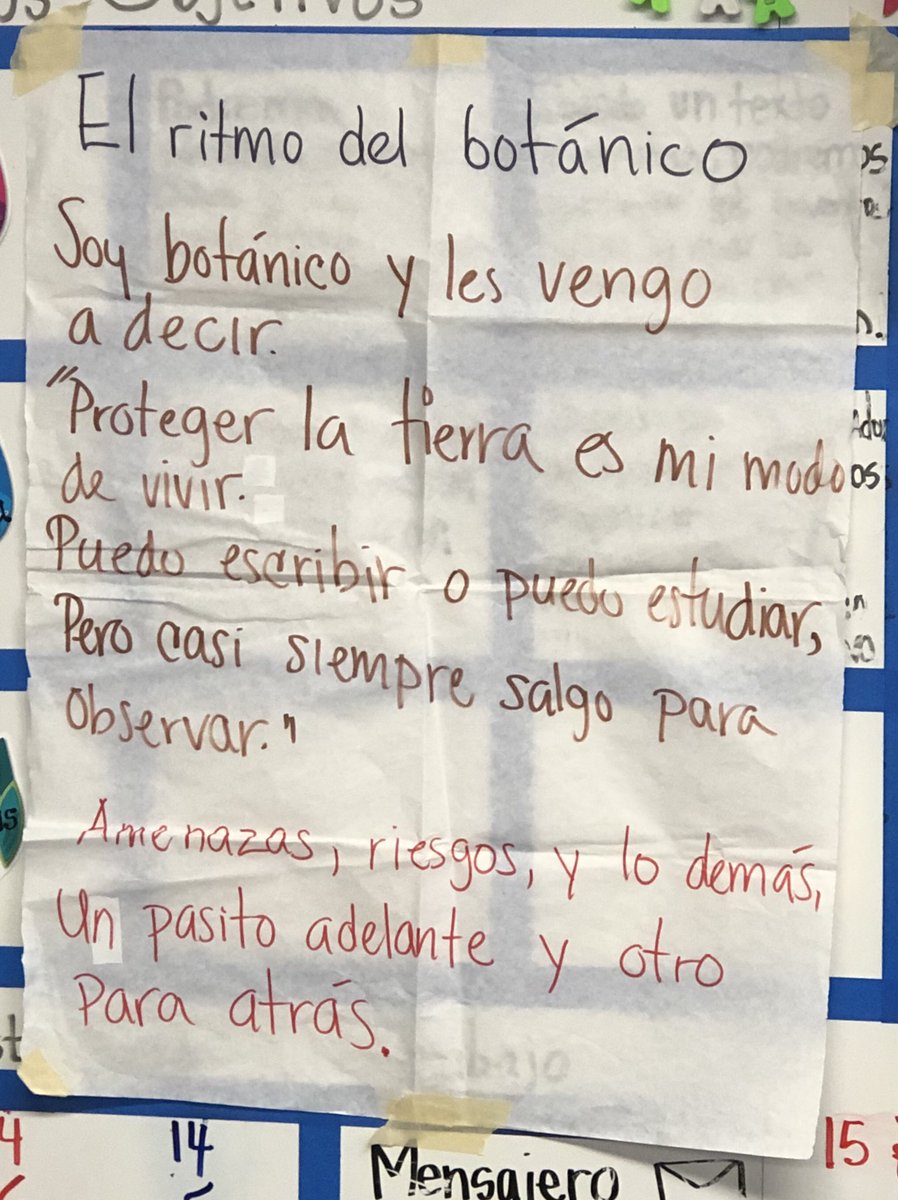 Objetivos
El ritmo del botánico
un texto
Soy botánico y les vengo
a decir.
"Proteger la tierra es mi modo
de vivir.
Puedo escribir o puedo estudiar,
Pero casi siempre salgo para
observar."
Amenazas, riesgos, y lo demás,
Un pasito adelante y otro
Para atrás.
bajo
14
15
Mensajero